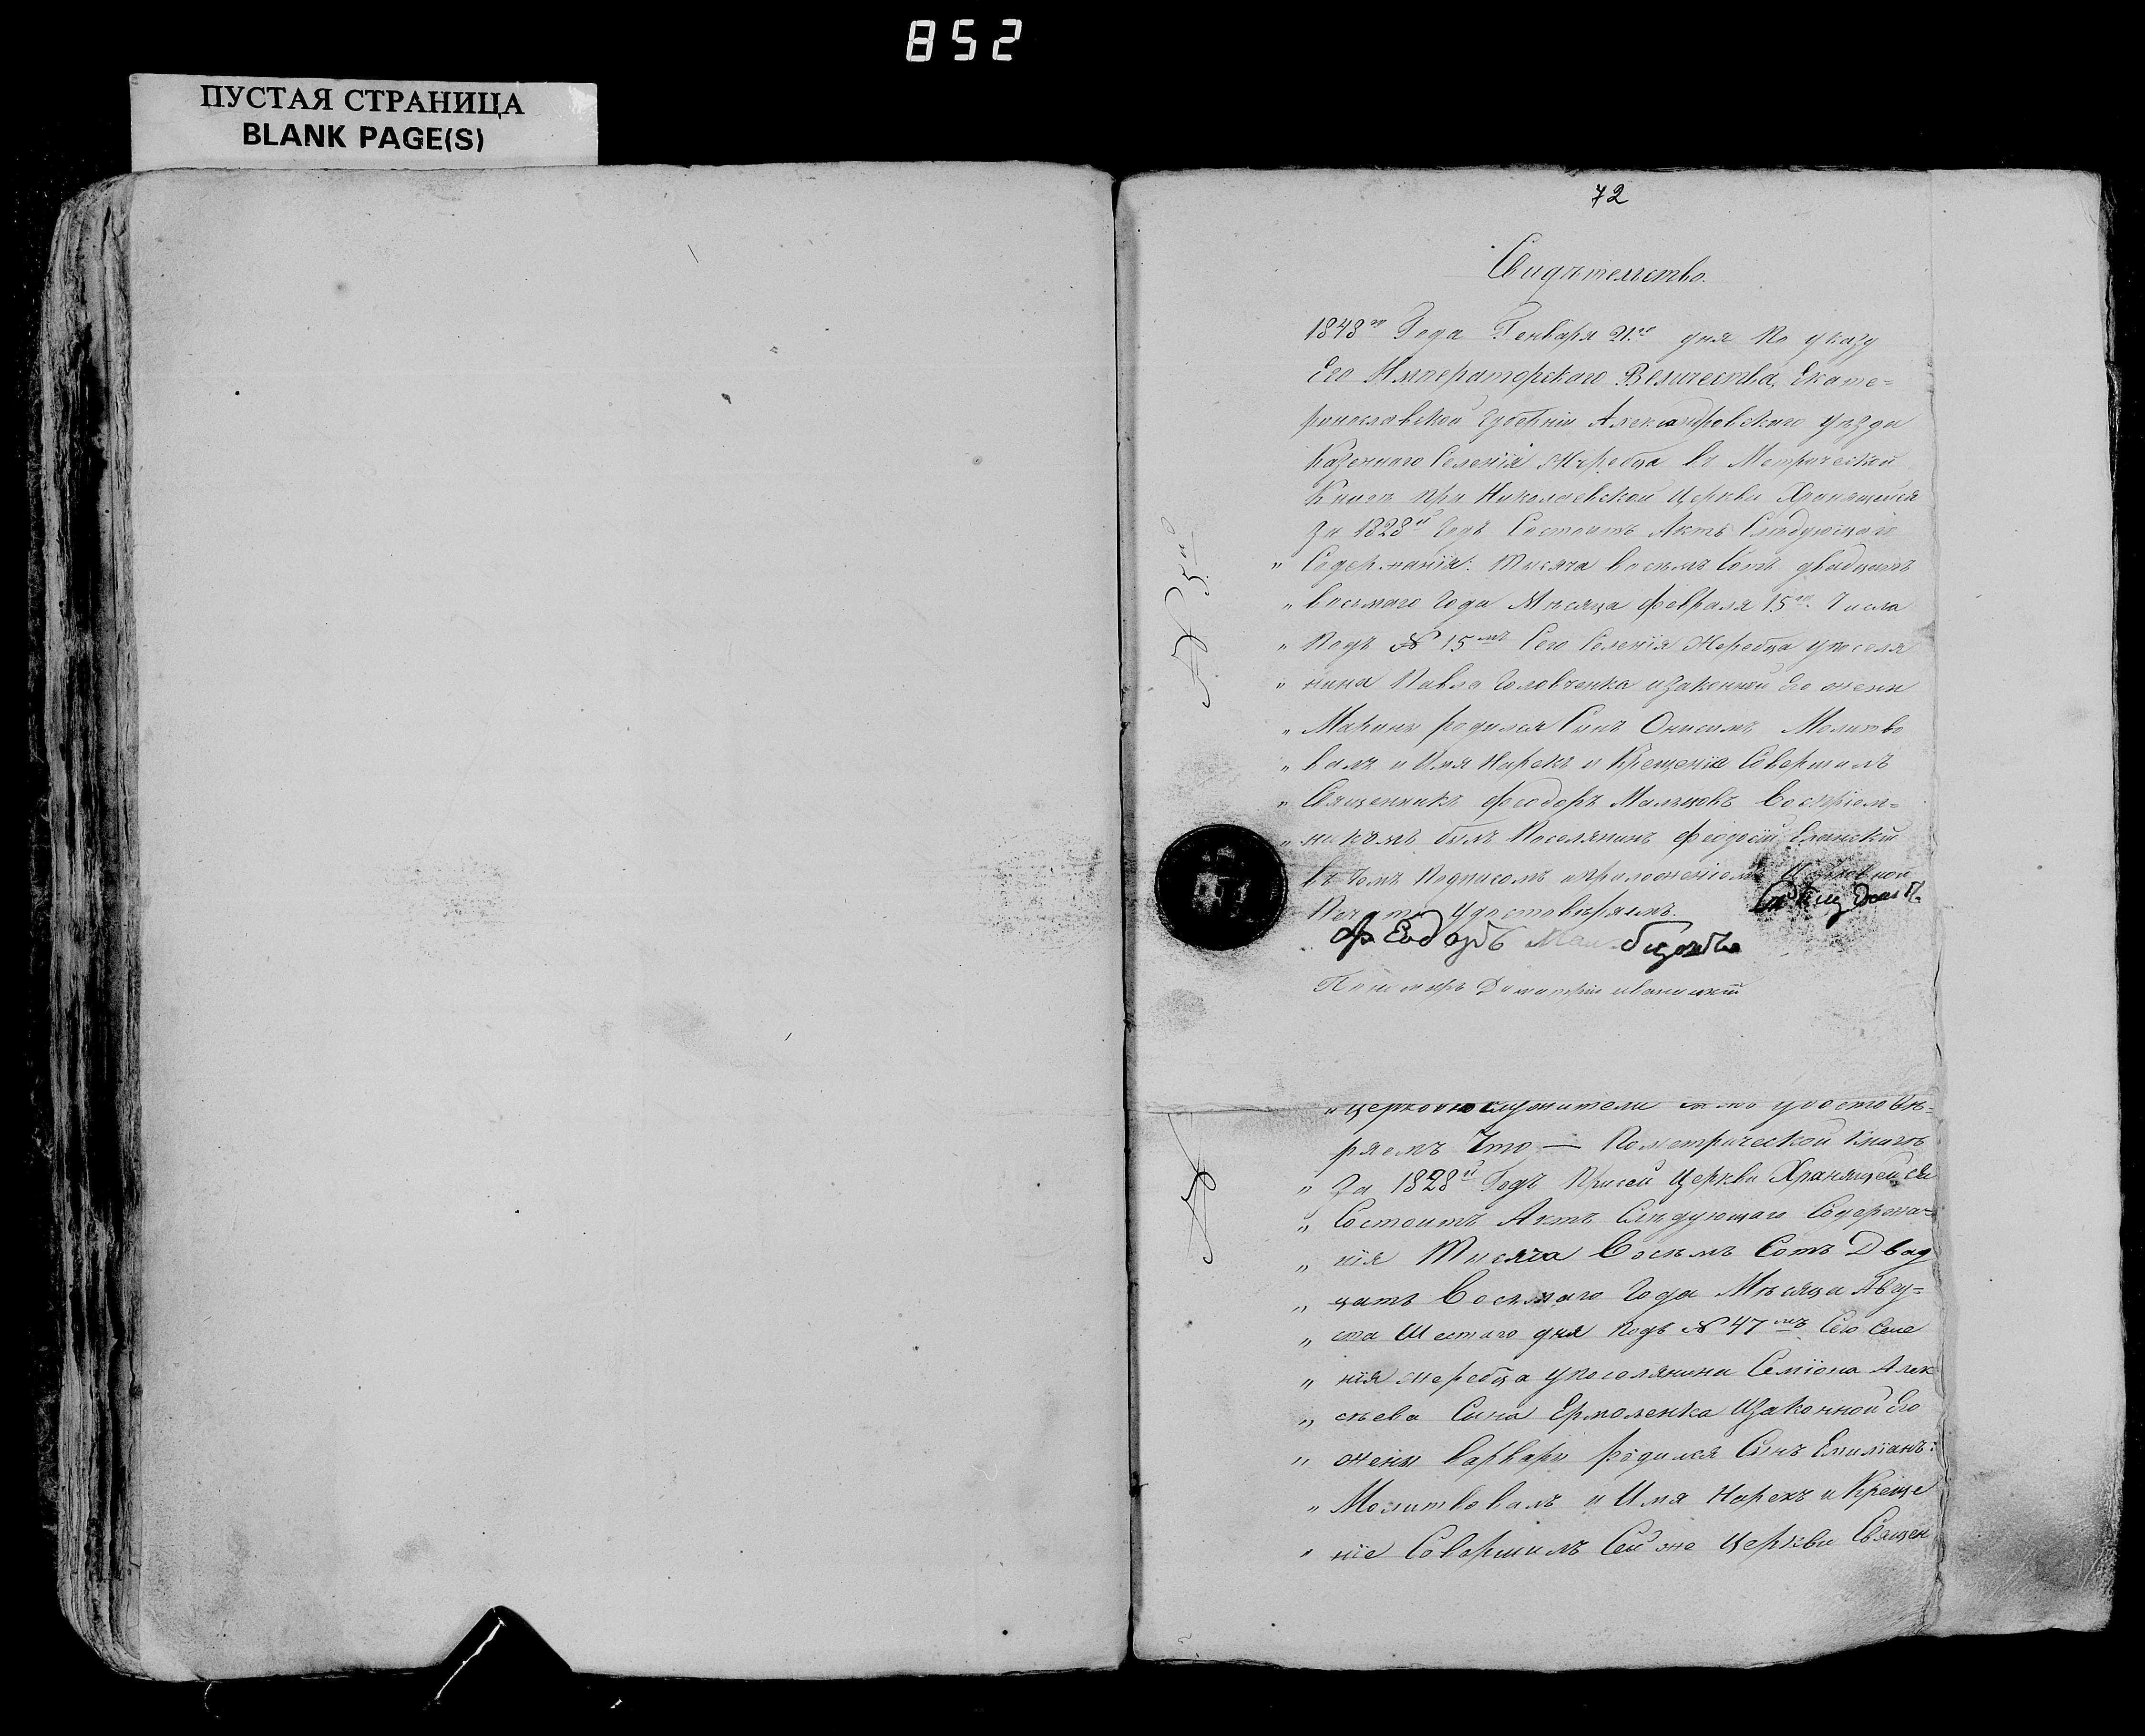 852
ПУСТАЯ СТРАНИЦА
BLANK PAGE(S)
72
Свидѣтельство.
1848го Года Генваря 21го дня По указу
Его Императорскаго Величества, Екате=
ринославской Губерніи Александровскаго уѣзда
Казеннаго Селенія Жеребца въ Метрической
Книгѣ при Николаевской Церкви Хранящейся
За 1828й Годъ Состоитъ Актъ Слѣдующаго
„ Содержанія: Тысяча восемъ Сотъ двадцать
„ восьмаго Года Мѣсяца февраля 15го Числа
„ Подъ № 15мъ Сего Селенія Жеребца упоселя
„ нина Павла Головченка изаконной Его жены
„ Марины родился Сынъ Онисимъ Молитво
„ валъ и Имя Нарекъ и Крещеніе Совершилъ
„ Священникъ Феодоръ Мальцовъ Воспріем=
„ никомъ былъ Поселянинъ Феодосій
въ томъ Подписомъ иприложеніемъ Церковной
Печати удостовѣряемъ.
Феодоръ
Пономарь Димитрій
„ Церковнослужители симъ удостовѣ=
ряемъ Что — Пометрической Книгѣ
„ За 1828й Годъ Присей Церкви Хранящейся
„ Состоитъ Актъ Слѣдующаго Содержа=
„ нія Тысяча Восемъ Сотъ Двад
„ цать Восьмаго Года Мѣсяца Авгу=
„ ста Шестаго дня Подъ № 47мъ Сего Селе
„ нія жеребца упоселянина Семіона Алек
„ сѣева Сына Ермоленка Изаконной Его
„ жены Варвары родился Сынъ Емиліанъ:
„ Молитвовалъ и Имя Нарекъ и Креще
„ ніе Совершилъ Сей же Церкви Священ